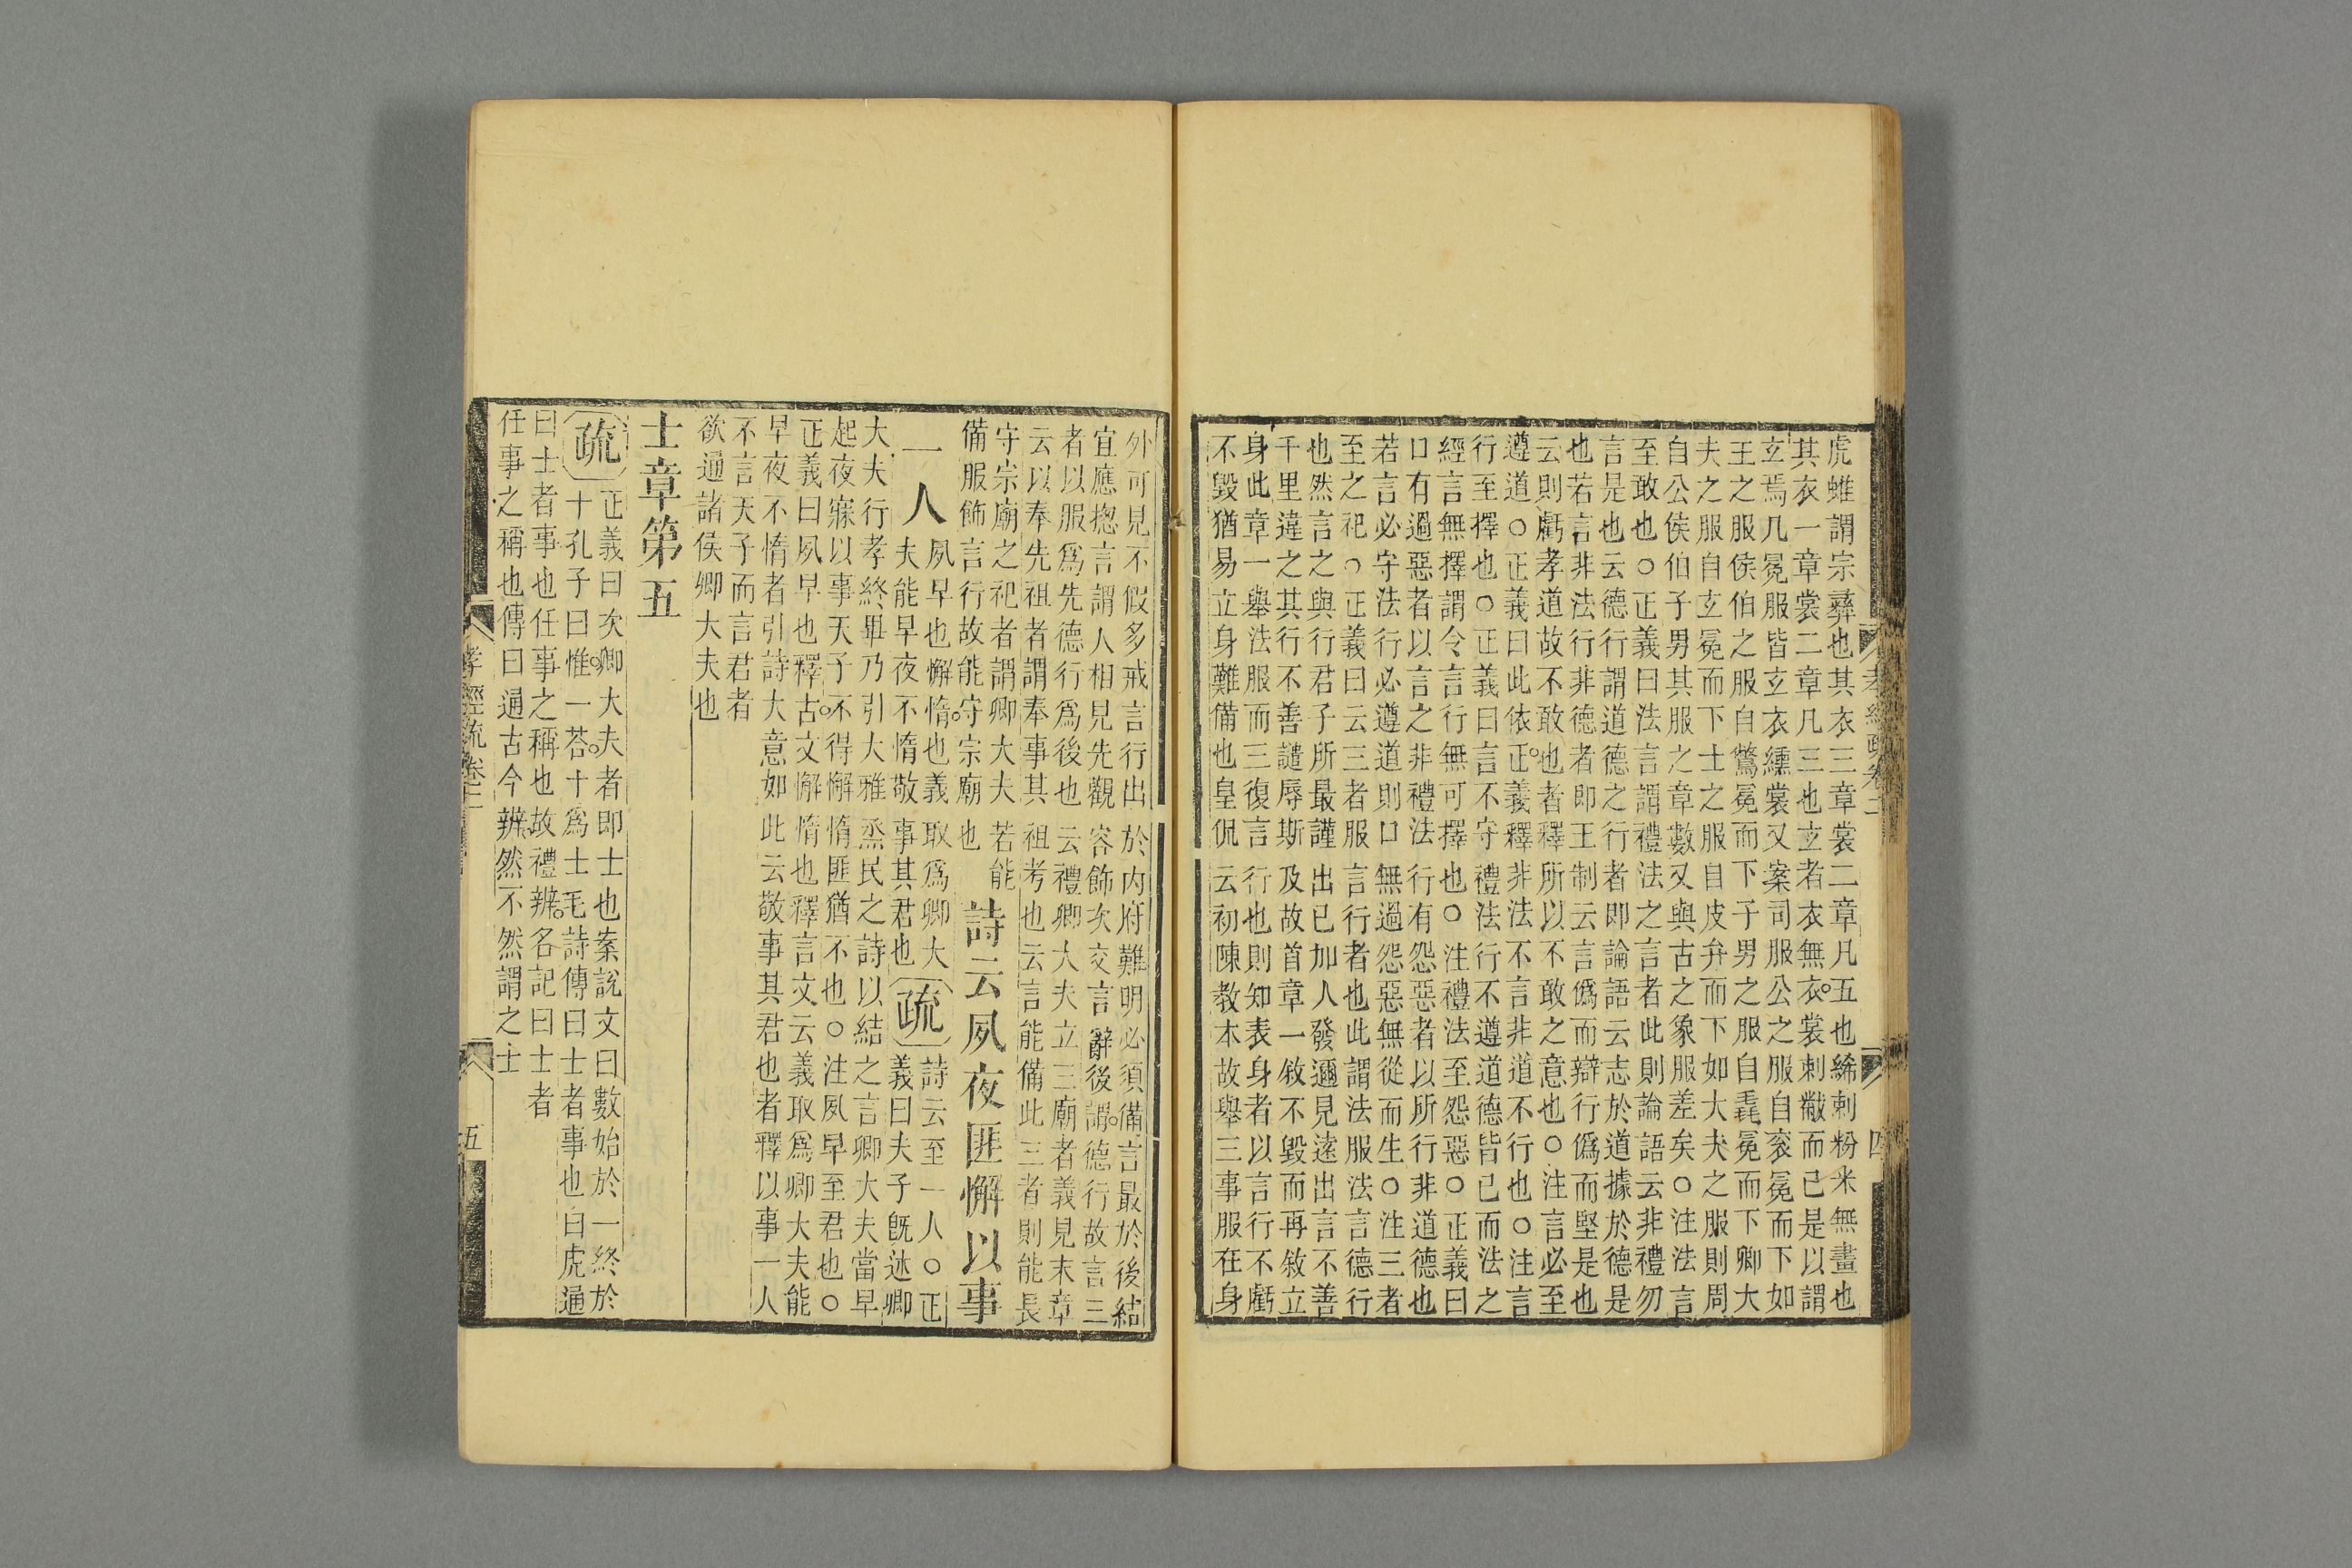 虎蜼謂宗彝也其衣三章裳二章凡五也絺刺粉米無畫也
其衣一章裳二章凡三也玄者衣無衣裳刺黻而已是以謂
玄焉凡冕服皆玄衣纁裳又案司服公之服自衮冕而下如
王之服侯伯之服自鷩冕而下子男之服自毳冕而下卿大
夫之服自玄冕而下士之服自皮弁而下如大夫之服則周
自公侯伯子男其服之章數又與古之象服差矣○注法言
至敢也○正義曰法言謂禮法之言者此則論語云非禮勿
言是也云德行謂道德之行者即論語云志於道據於德是
也若言非法行非德者即王制云言僞而辯行僞而堅是也
云則虧孝道故不敢也者釋所以不敢之意也○注言必至
遵道○正義曰此依正義釋非法不言非道不行也○注言
行至擇也○正義曰言不守禮法行不遵道德皆已而法之
經言無擇謂令言行無可擇也○注禮法至怨惡○正義曰
口有過惡者以言之非禮法行有怨惡者以所行非道德也
若言必守法行必遵道則口無過怨惡無從而生○注三者
至之祀○正義曰云三者服言行者也此謂法服法言德行
也然言之與行君子所最謹出已加人發邇見遠出言不善
千里違之其行不善譴辱斯及故首章一敘不毀而再敘立
身此章一舉法服而三復言行也則知表身者以言行不虧
不毀猶易立身難備也皇侃云初陳教本故舉三事服在身
孝經疏卷二
四
外可見不假多戒言行出於內府難明必須備言最於後結
宜應揔言謂人相見先觀容飾次交言辭後謂德行故言三
者以服爲先德行爲後也云禮卿大夫立三廟者義見末章
云以奉先祖者謂奉事其祖考也云言能備此三者則能長
守宗廟之祀者謂卿大夫若能
備服飾言行故能守宗廟也
詩云夙夜匪懈以事
一人
夙早也懈惰也義取爲卿大
夫能早夜不惰敬事其君也
疏
詩云至一人○正
義曰夫子既述卿
大夫行孝終畢乃引大雅烝民之詩以結之言卿大夫當早
起夜寐以事天子不得懈惰匪猶不也○注夙早至君也○
正義曰夙早也釋古文懈惰也釋言文云義取爲卿大夫能
早夜不惰者引詩大意如此云敬事其君也者釋以事一人
不言天子而言君者
欲通諸侯卿大夫也
士章第五
疏
正義曰次卿大夫者即士也案說文曰數始於一終於
十孔子曰惟一荅十爲士毛詩傳曰士者事也白虎通
曰士者事也任事之稱也故禮辨名記曰士者
任事之稱也傳曰通古今辨然不然謂之士
孝經疏卷二
五